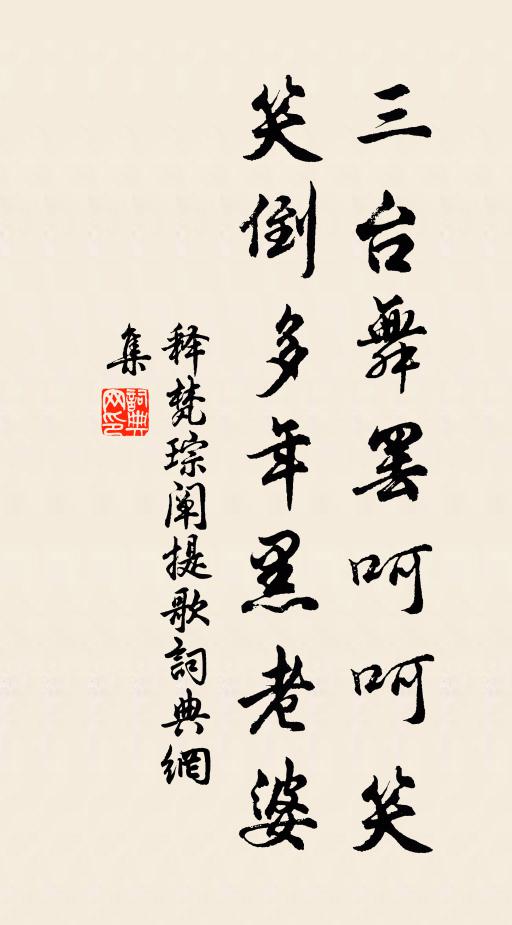 三台舞罢呵呵笑
笑倒多年黑老婆
释梵琮阐提歌詞典網
集
詞典
网印